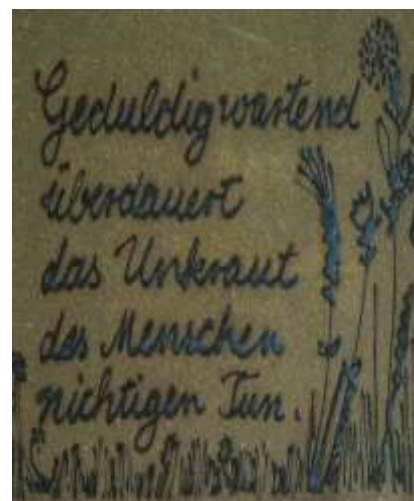 Geduldig wartend
überdauert
das Unkraut
des Menschen
nichtigen Tun.